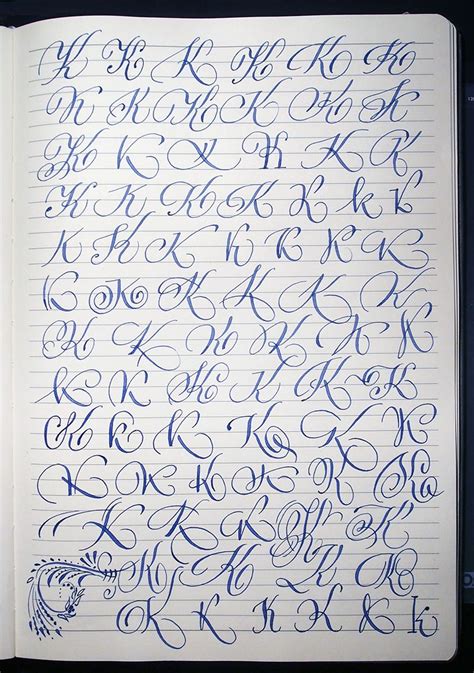 K K K K K K
K K K K K K
K K K K K K
K K K K K k k
K K K K K K K
K K K K K K
K K K K K K
k K K K K K K
K k k K K K K
K K K K K K K
K K K K K
K K K K
K K K K K K k